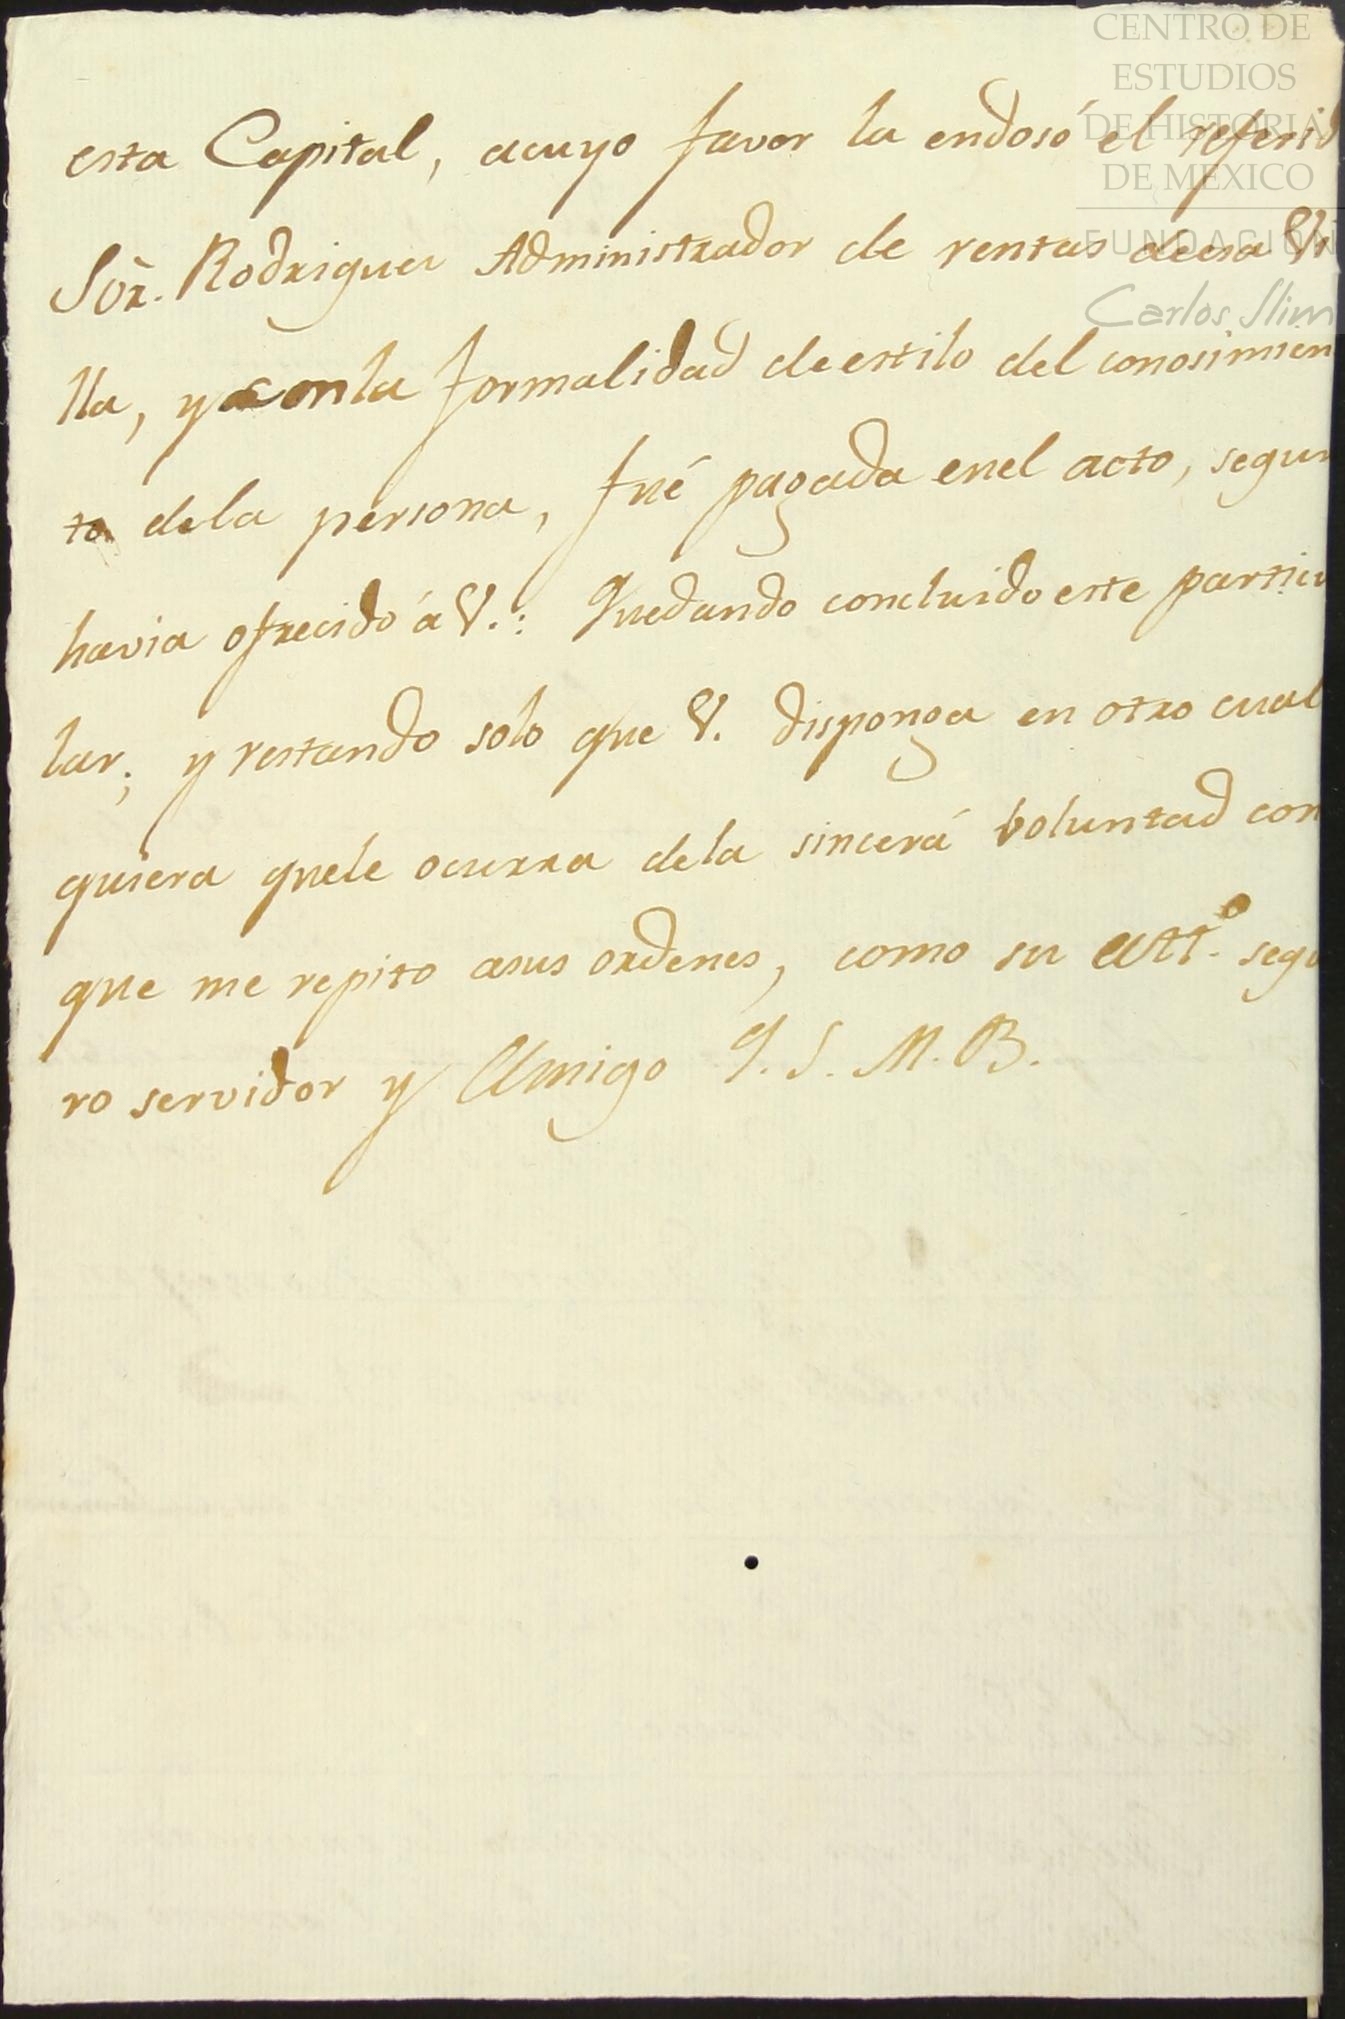 CENTRO DE
ESTUDIOS
DE HISTORIA
DE MEXICO
FUNDACION
Carlos Slim
esta Capital, acuyo favor la endosó el referid
Sör. Rodriguez Administrador de rentas deesa Vi
lla, y conla formalidad deestilo del conosimien
to dela persona, fué pagada enel acto, segun
havia ofrecido á V.: Quedando concluido este particu
lar; y restando solo que V. disponga en otro cual
quiera quele ocurra dela sincerá voluntad con
que me repito asus ordenes, como su att.º segu
ro servidor y Amigo Q. S. M. B.